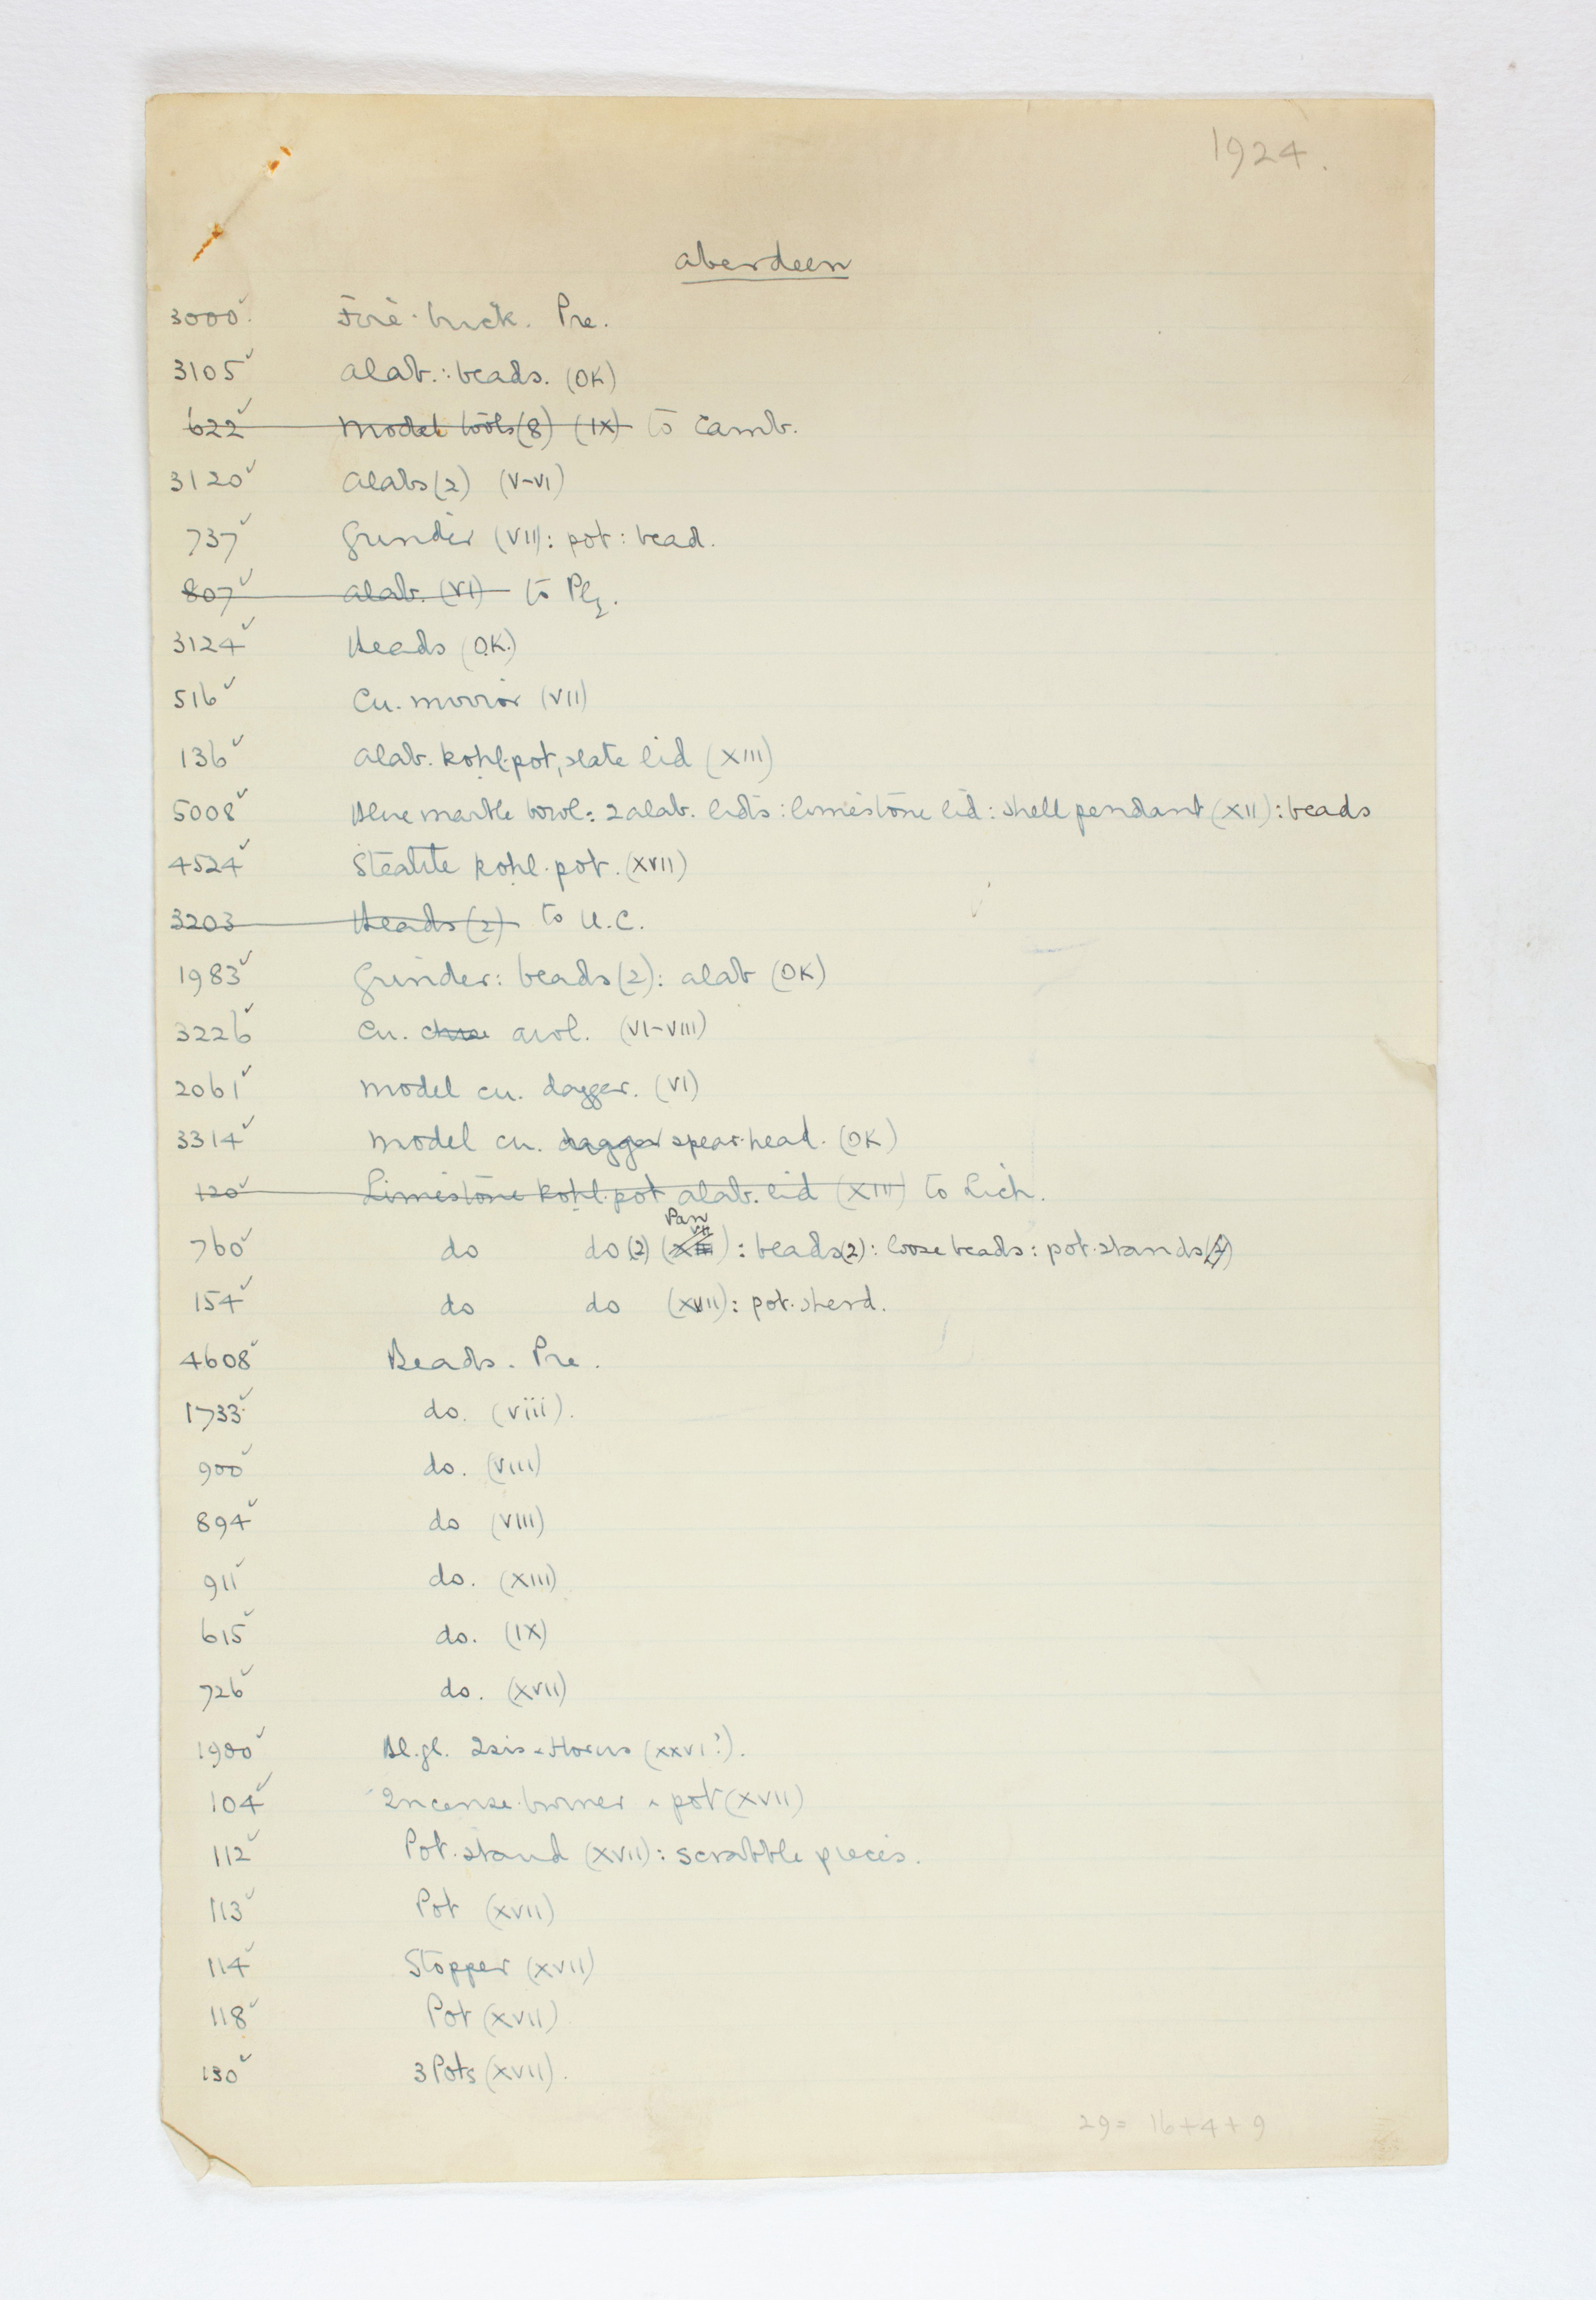 1924.
Aberdeen
3000 ✓ Fire-brick. Pre.
3105 ✓ Alab.: beads. (OK)
622 ✓ Model tools (8) (IX) to Camb.
3120 ✓ Alabs (2) (V-VI)
737 ✓ Grinder (VII): pot: bead.
807 ✓ Alab. (VI) to Plz.
3124 ✓ Beads (O.K.)
516 ✓ Cu. mirror (VII)
136 ✓ Alab. kohl-pot, slate lid (XIII)
5008 ✓ Blue marble bowl: 2 alab. lids: limestone lid: shell pendant (XII): beads
4524 ✓ Steatite kohl-pot. (XVII)
3203 Beads (2) to U.C.
1983 ✓ Grinder: beads (2): alab (OK)
3226 ✓ Cu. awl. (VI-VIII)
2061 ✓ Model cu. dagger. (VI)
3314 ✓ Model cu. dagger spear-head. (OK)
120 ✓ Limestone kohl-pot alab. lid (XIII) to Lich.
Pan
760 ✓ do do (2) (XII VII): beads (2): loose beads: pot-stands
154 ✓ do do (XVII): pot-sherd.
4608 ✓ Beads. Pre.
1733 ✓ do. (viii).
900 ✓ do. (VIII)
894 ✓ do (VIII)
911 ✓ do. (XIII)
615 ✓ do. (IX)
726 ✓ do. (XVII)
1900 ✓ Bl. gl. Isis & Horus (XXVI?).
104 ✓ Incense-burner & pot (XVII)
112 ✓ Pot-stand (XVII): scrabble pieces.
113 ✓ Pot (XVII)
114 ✓ Stopper (XVII)
118 ✓ Pot (XVII)
130 ✓ 3 Pots (XVII).
29 = 16+4+9